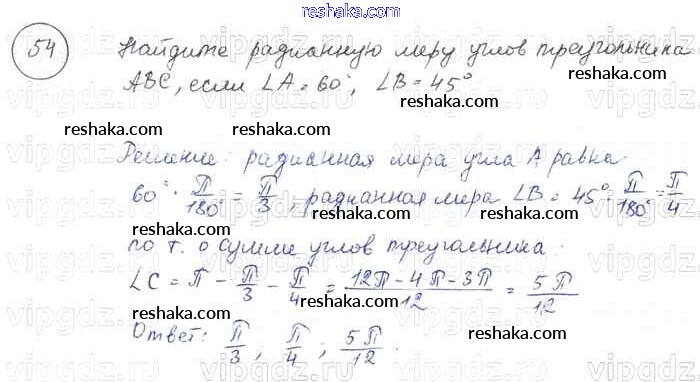 reshaka.com
54 Найдите радианную меру углов треугольника
ABC, если ∠A = 60°, ∠B = 45°
reshaka.com reshaka.com reshaka.com
Решение: радианная мера угла A равна
60° · π/180° = π/3, радианная мера ∠B = 45° · π/180° = π/4
reshaka.com reshaka.com reshaka.com
по т. о сумме углов треугольника:
∠C = π - π/3 - π/4 = (12π - 4π - 3π)/12 = 5π/12
reshaka.com reshaka.com reshaka.com
Ответ: π/3; π/4; 5π/12.
reshaka.com reshaka.com reshaka.com